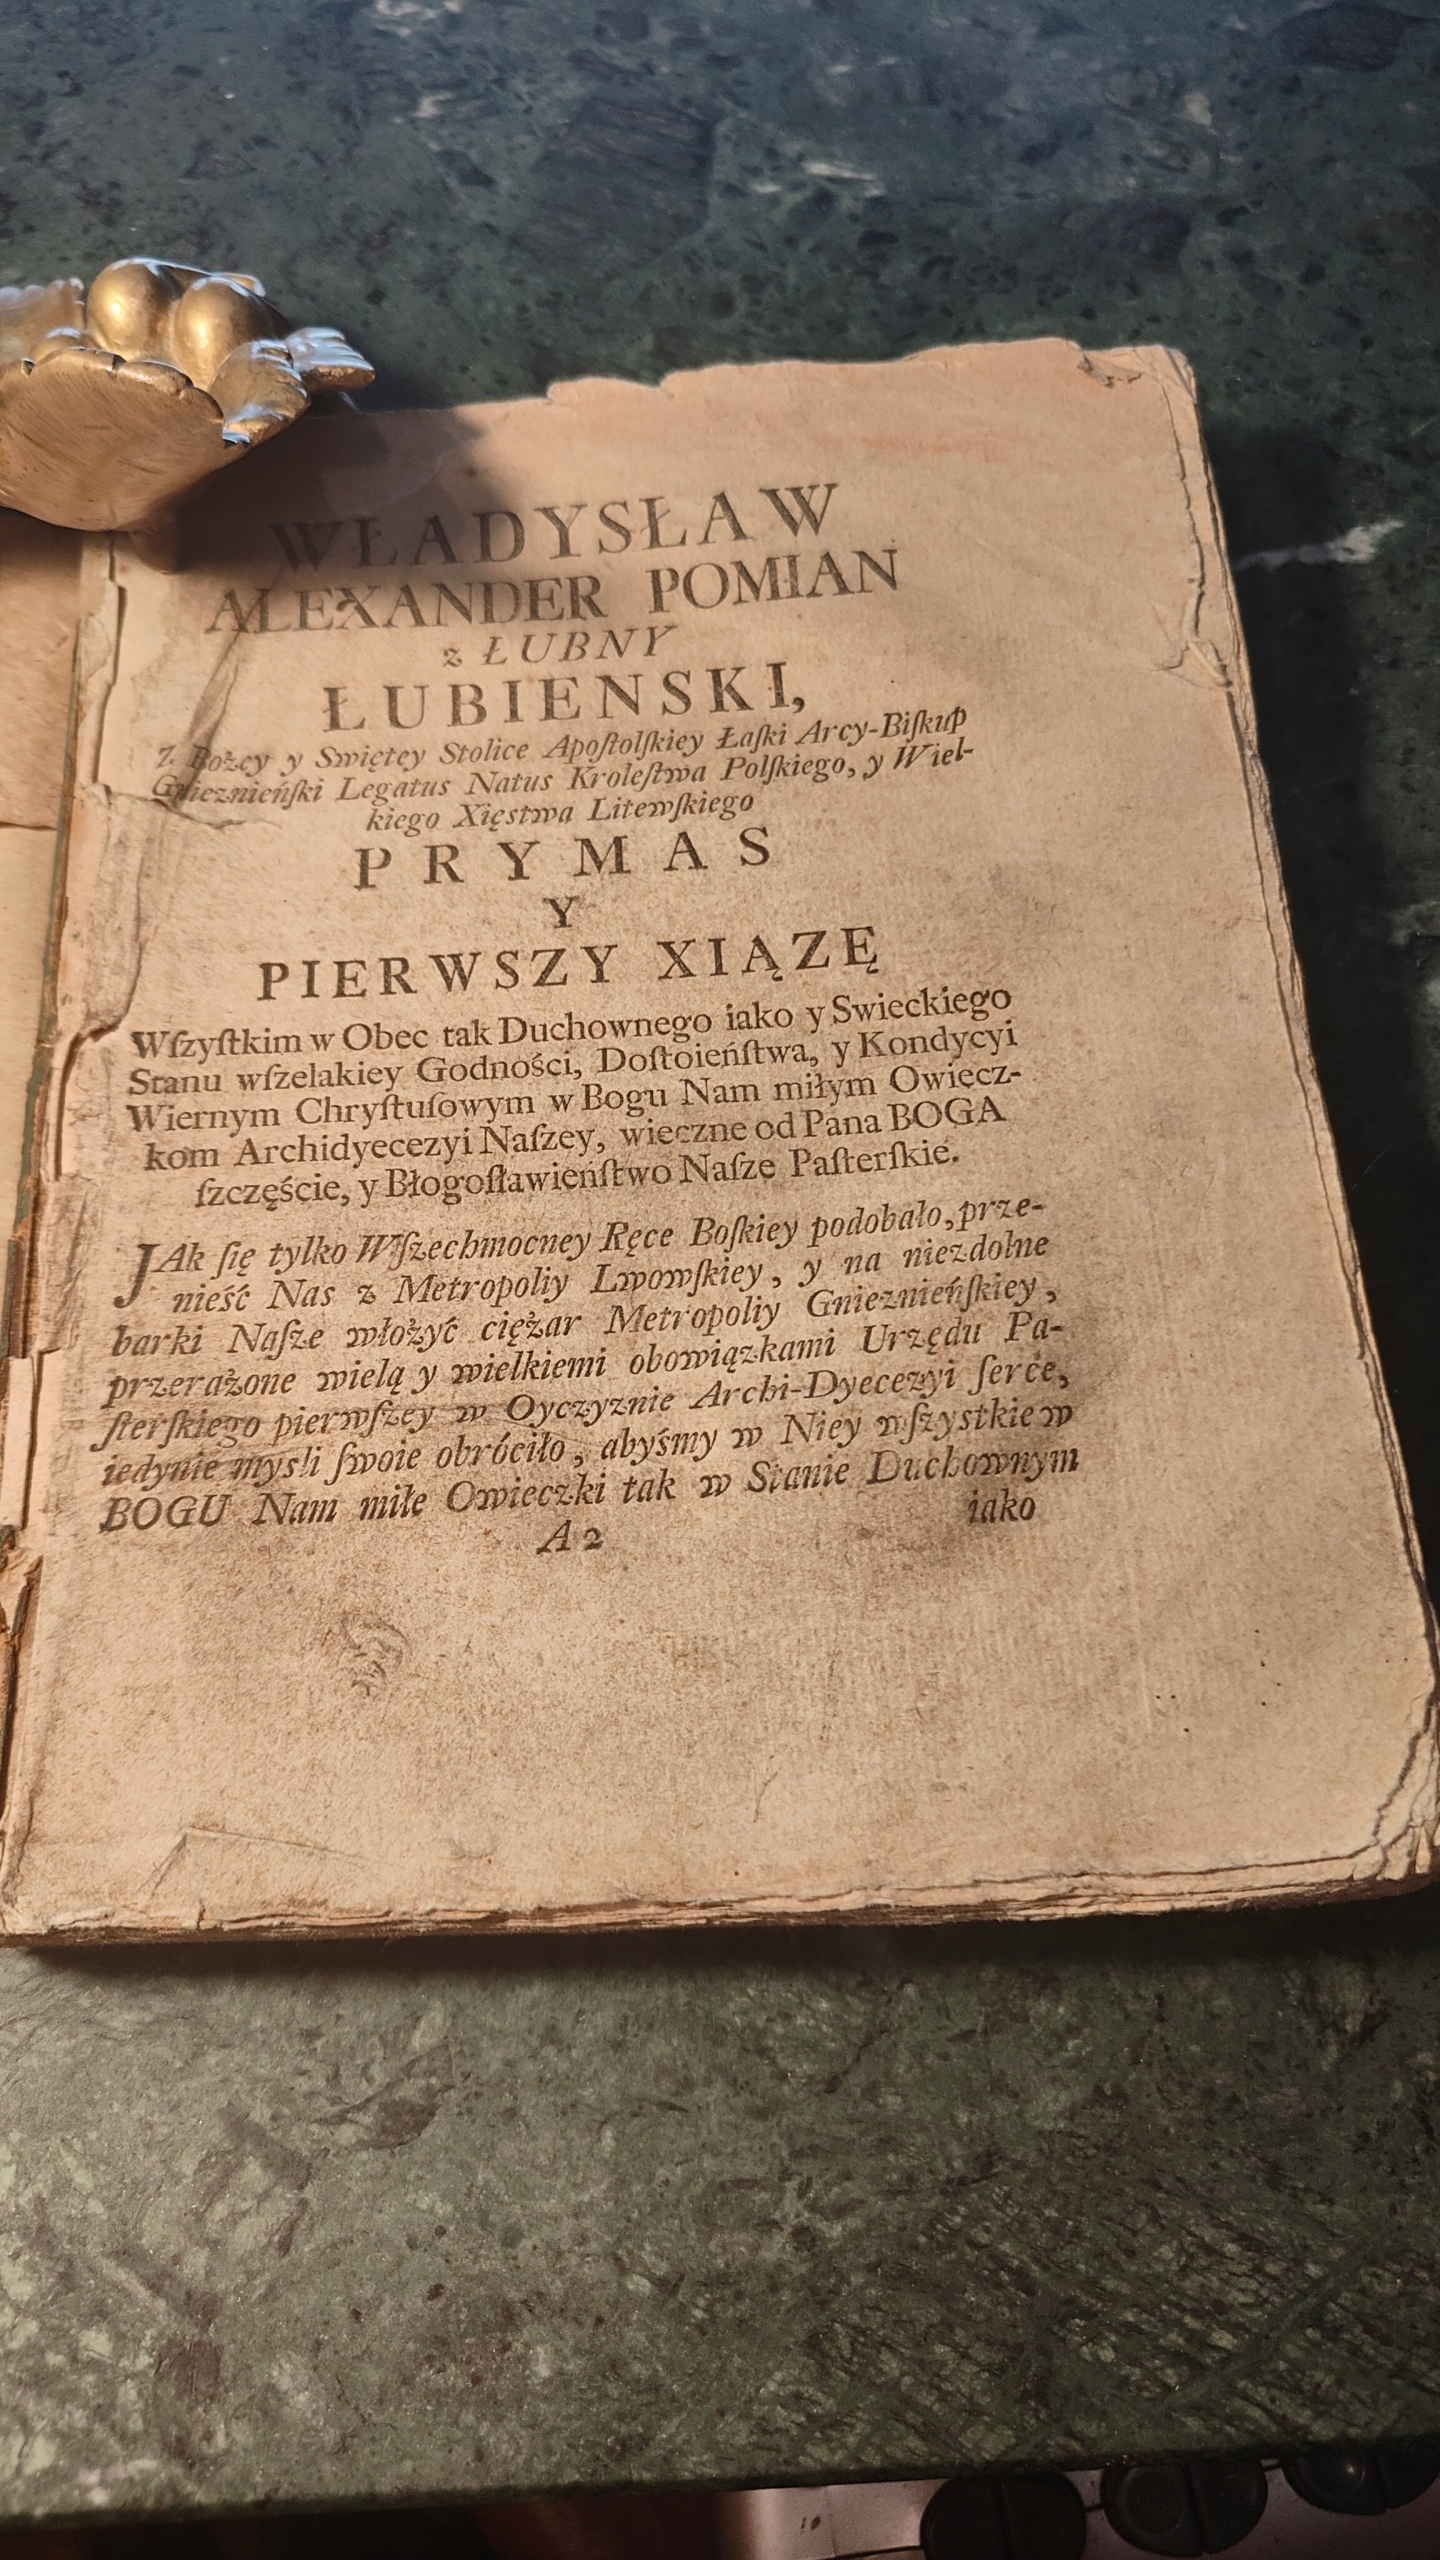 WŁADYSŁAW
ALEXANDER POMIAN
z ŁUBNY
ŁUBIENSKI,
Z Bożey y Swiętey Stolice Apoſtolſkiey Łaſki Arcy-Biſkup
Gnieznieńſki Legatus Natus Kroleſtwa Polſkiego, y Wiel-
kiego Xięstwa Litewſkiego
PRYMAS
Y
PIERWSZY XIĄZĘ
Wſzyſtkim w Obec tak Duchownego iako y Swieckiego
Stanu wſzelakiey Godności, Doſtoieńſtwa, y Kondycyi
Wiernym Chryſtuſowym w Bogu Nam miłym Owiecz-
kom Archidyecezyi Naſzey, wieczne od Pana BOGA
ſzczęście, y Błogoſławieńſtwo Naſze Paſterſkie.
JAk ſię tylko Wſzechmocney Ręce Boſkiey podobało, prze-
nieść Nas z Metropoliy Lwowſkiey, y na niezdolne
barki Naſze włożyć ciężar Metropoliy Gnieznieńſkiey,
przerażone wielą y wielkiemi obowiązkami Urzędu Pa-
ſterſkiego pierwſzey w Oyczyznie Archi-Dyecezyi ſerce,
iedynie mysli ſwoie obróciło, abyśmy w Niey wſzystkie w
BOGU Nam miłe Owieczki tak w Stanie Duchownym
A 2 iako